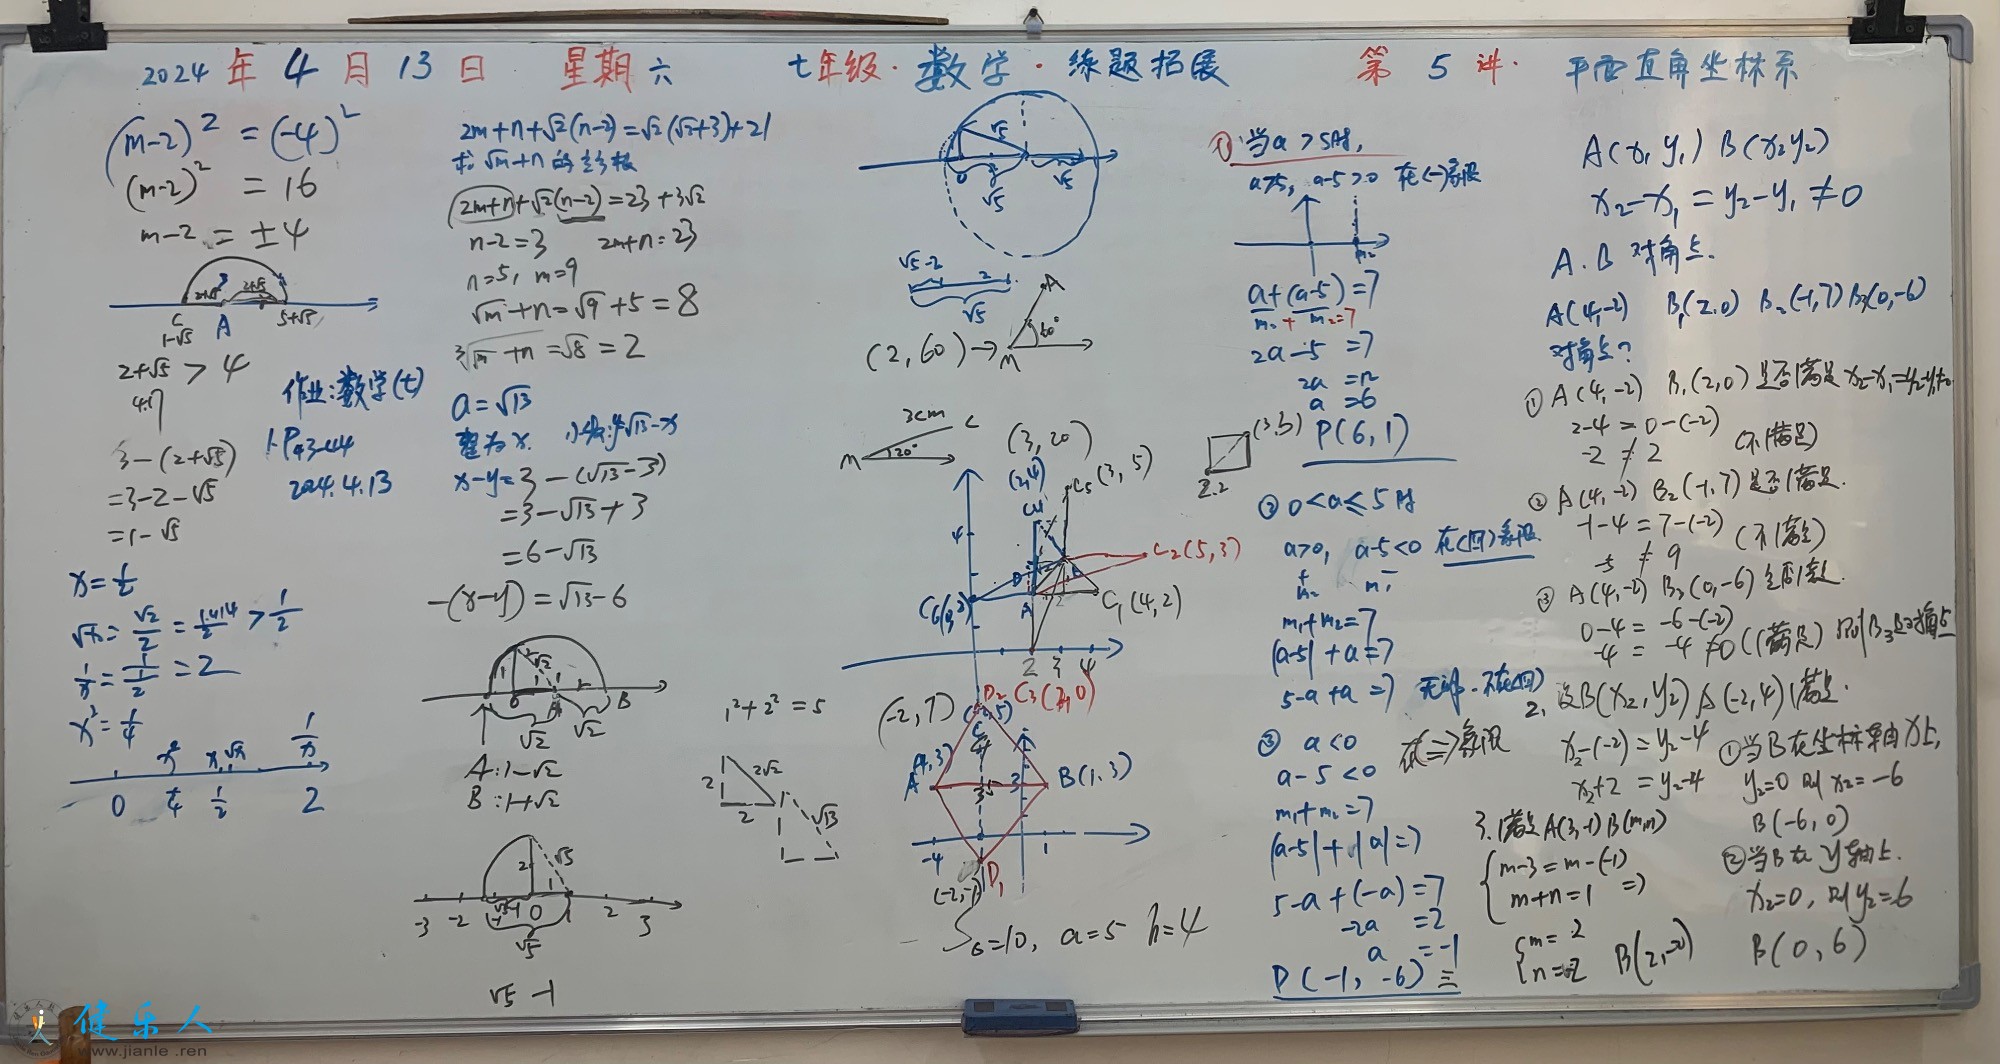 2024年4月13日 星期六 七年级·数学·练题拓展 第5讲·平面直角坐标系
(m-2)² = (-4)²
(m-2)² = 16
m-2 = ±4
2+√5
2+√5
C
A
5+√5
1-√5
2+√5 > 4
3-(2+√5)
=3-2-√5
=1-√5
作业:数学(七)
1.P43-44
2024.4.13
√x = √2/2 = 1.414/2 > 1/2
1/x = 1/(1/2) = 2
x² = 1/4
x² x √x 1/x
0 1/4 1/2 2
2m+n+√2(n-2)=√2(√2+3)+21
求√m+n的立方根
2m+n+√2(n-2)=23+3√2
n-2=3 2m+n=23
n=5, m=9
√m+n=√9+5=8
a=√13
整为x. 小数:y=√13-x
x-y=3-(√13-3)
=3-√13+3
=6-√13
-(x-y)=√13-6
1
√2
0
A
B
√2
√2
A:1-√2
B:1+√2
2
√5
1
-3 -2 0 1 2 3
√5
√5-1
1²+2²=5
2
2√2
2
√13
√5
0
√5
√5
√5-2
2
√5
(2,60)→
A
60°
M
3cm
C
M
20°
(3,20)
(2,4)
C4
C5(3,5)
4
C2(5,3)
A
C1(4,2)
2 3 4
C3(2,0)
(3,3)
2.2
(-2,7)
D2
(-2,5)
A
B(1,3)
3
-4
1
D1
(-2,-1)
S△=10, a=5 h=4
①当a>5时,
a>5, a-5>0 在(一)象限
m2
a+(a-5)=7
m1+m2=7
2a-5=7
2a=12
a=6
P(6,1)
②0<a≤5时
a>0, a-5<0 在(四)象限
m1+m2=7
|a-5|+a=7
5-a+a=7 无解.不在(四)
③ a<0
a-5<0 在(三)象限
m1+m2=7
|a-5|+|a|=7
5-a+(-a)=7
-2a=2
a=-1
P(-1,-6) 三
A(x1 y1) B(x2 y2)
x2-x1=y2-y1≠0
A.B 对角点.
A(4,-2) B1(2,0) B2(-1,7) B3(0,-6)
对角点?
① A(4,-2) B1(2,0)是否满足x2-x1=y2-y1≠0
2-4=0-(-2)
-2≠2 (不满足)
② A(4,-2) B2(-1,7)是否满足.
-1-4=7-(-2)
-5≠9 (不满足)
③ A(4,-2) B3(0,-6)是否满足.
0-4=-6-(-2)
-4=-4≠0(满足) 则B3是对角点
2.设B(x2,y2) A(-2,4)满足.
x2-(-2)=y2-4
x2+2=y2-4
①当B在坐标轴x上,
y2=0 则x2=-6
B(-6,0)
②当B在y轴上.
x2=0, 则y2=6
B(0,6)
3.满足A(3,-1) B(m,n)
m-3=n-(-1)
m+n=1 ⇒
m=2
B(2,-2)
健乐人
www.jianle.ren